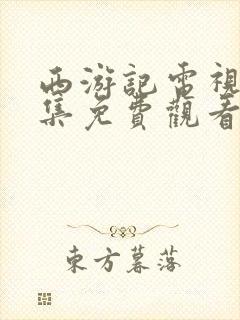 西游記電視
集免費觀看
東方暮落